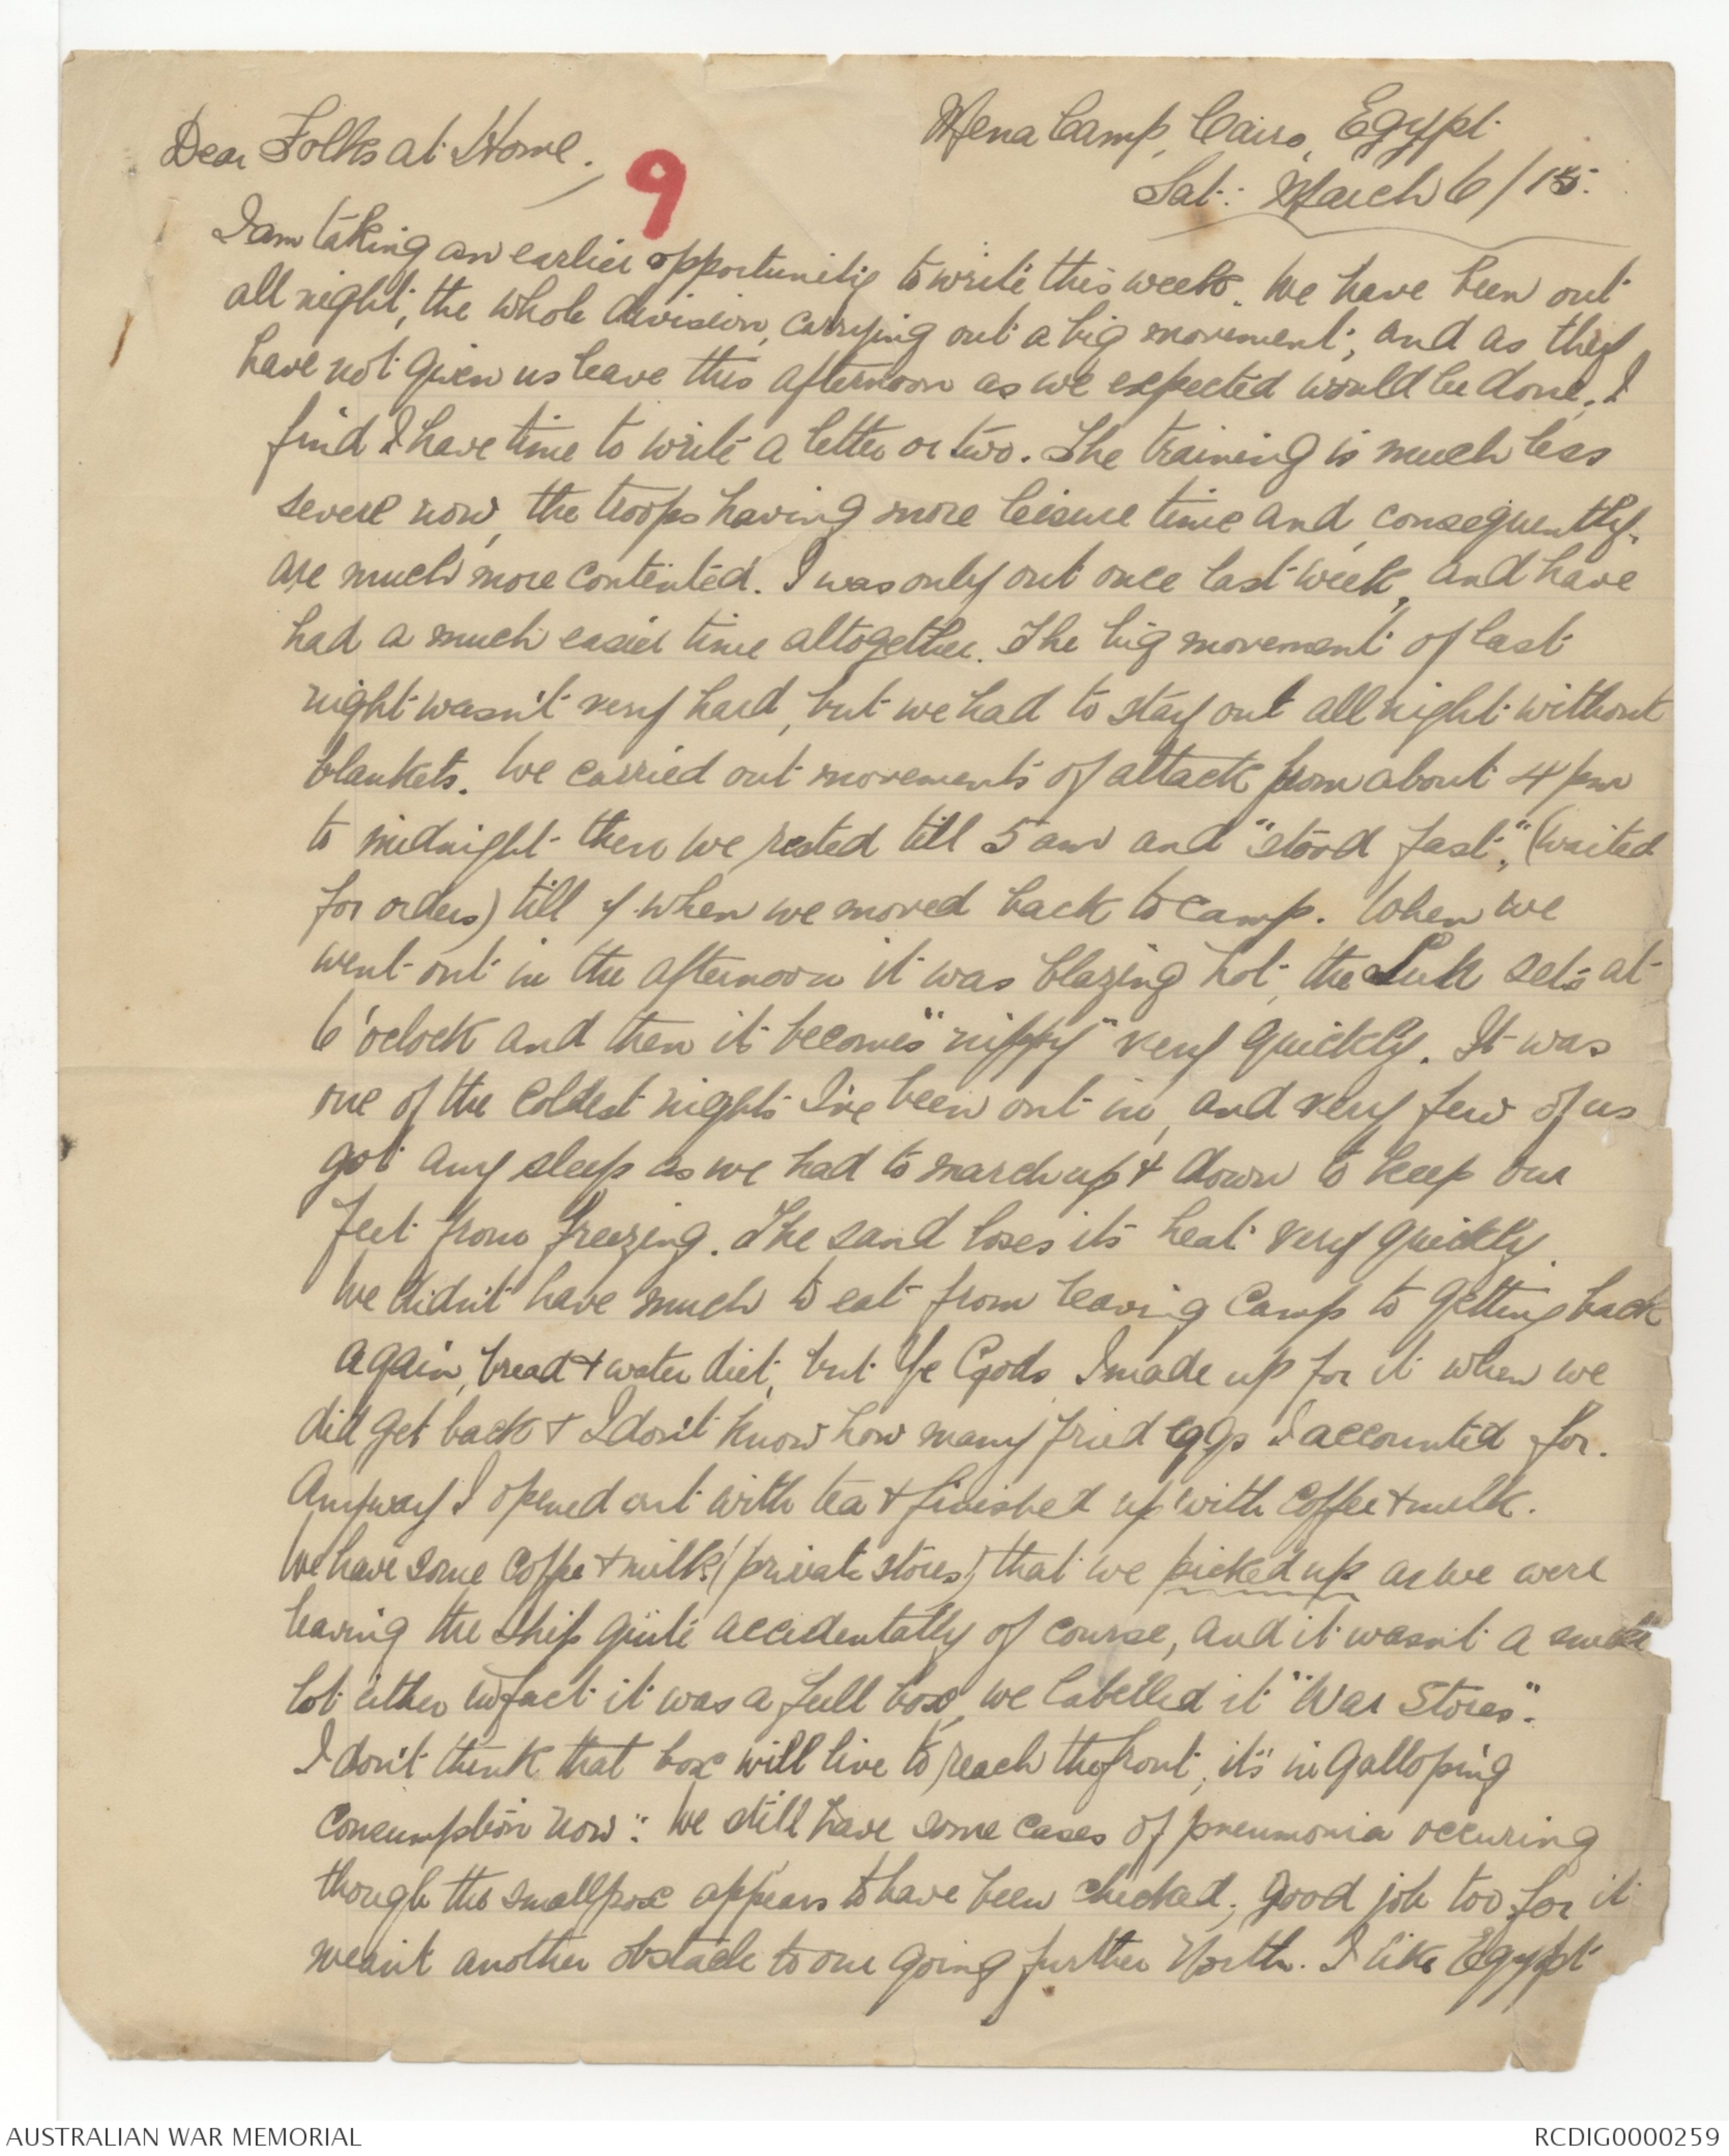 Mena Camp, Cairo, Egypt.
Dear Folks at Home.
9
Sat: March 6/15.
I am taking an earlier opportunity to write this week. We have been out
all night, the whole division, carrying out a big movement, and as they
have not given us leave this afternoon as we expected would be done, I
find I have time to write a letter or two. The training is much less
severe now, the troops having more leisure time and, consequently,
are much more contented. I was only out once last week, and have
had a much easier time altogether. The big movement of last
night wasn't very hard, but we had to stay out all night without
blankets. We carried out movements of attack from about 4 pm
to midnight then we rested till 5 am and "stood fast", (waited
for orders) till 7 when we moved back to camp. When we
went out in the afternoon it was blazing hot, the Sun sets at
6 o'clock and then it becomes "nippy" very quickly. It was
one of the coldest nights I've been out in, and very few of us
got any sleep as we had to march up & down to keep our
feet from freezing. The sand loses its heat very quickly.
We didn't have much to eat from leaving Camp to getting back
again, bread & water diet, but Ye Gods I made up for it when we
did get back & I don't know how many fried eggs I accounted for.
Anyway I opened out with tea & finished up with coffee & milk.
We have some coffe & milk (private stores) that we picked up as we were
leaving the ship quite accidentally of course, and it wasn't a small
lot either infact it was a full box, we labelled it "War Stores".
I don't think that box will live to reach the front, it's in galloping
consumption now. We still have some cases of pneumonia occuring
though the smallpox appears to have been checked, good job too for it
meant another obstacle to our going further North. I like Egypt
AUSTRALIAN WAR MEMORIAL
RCDIG0000259